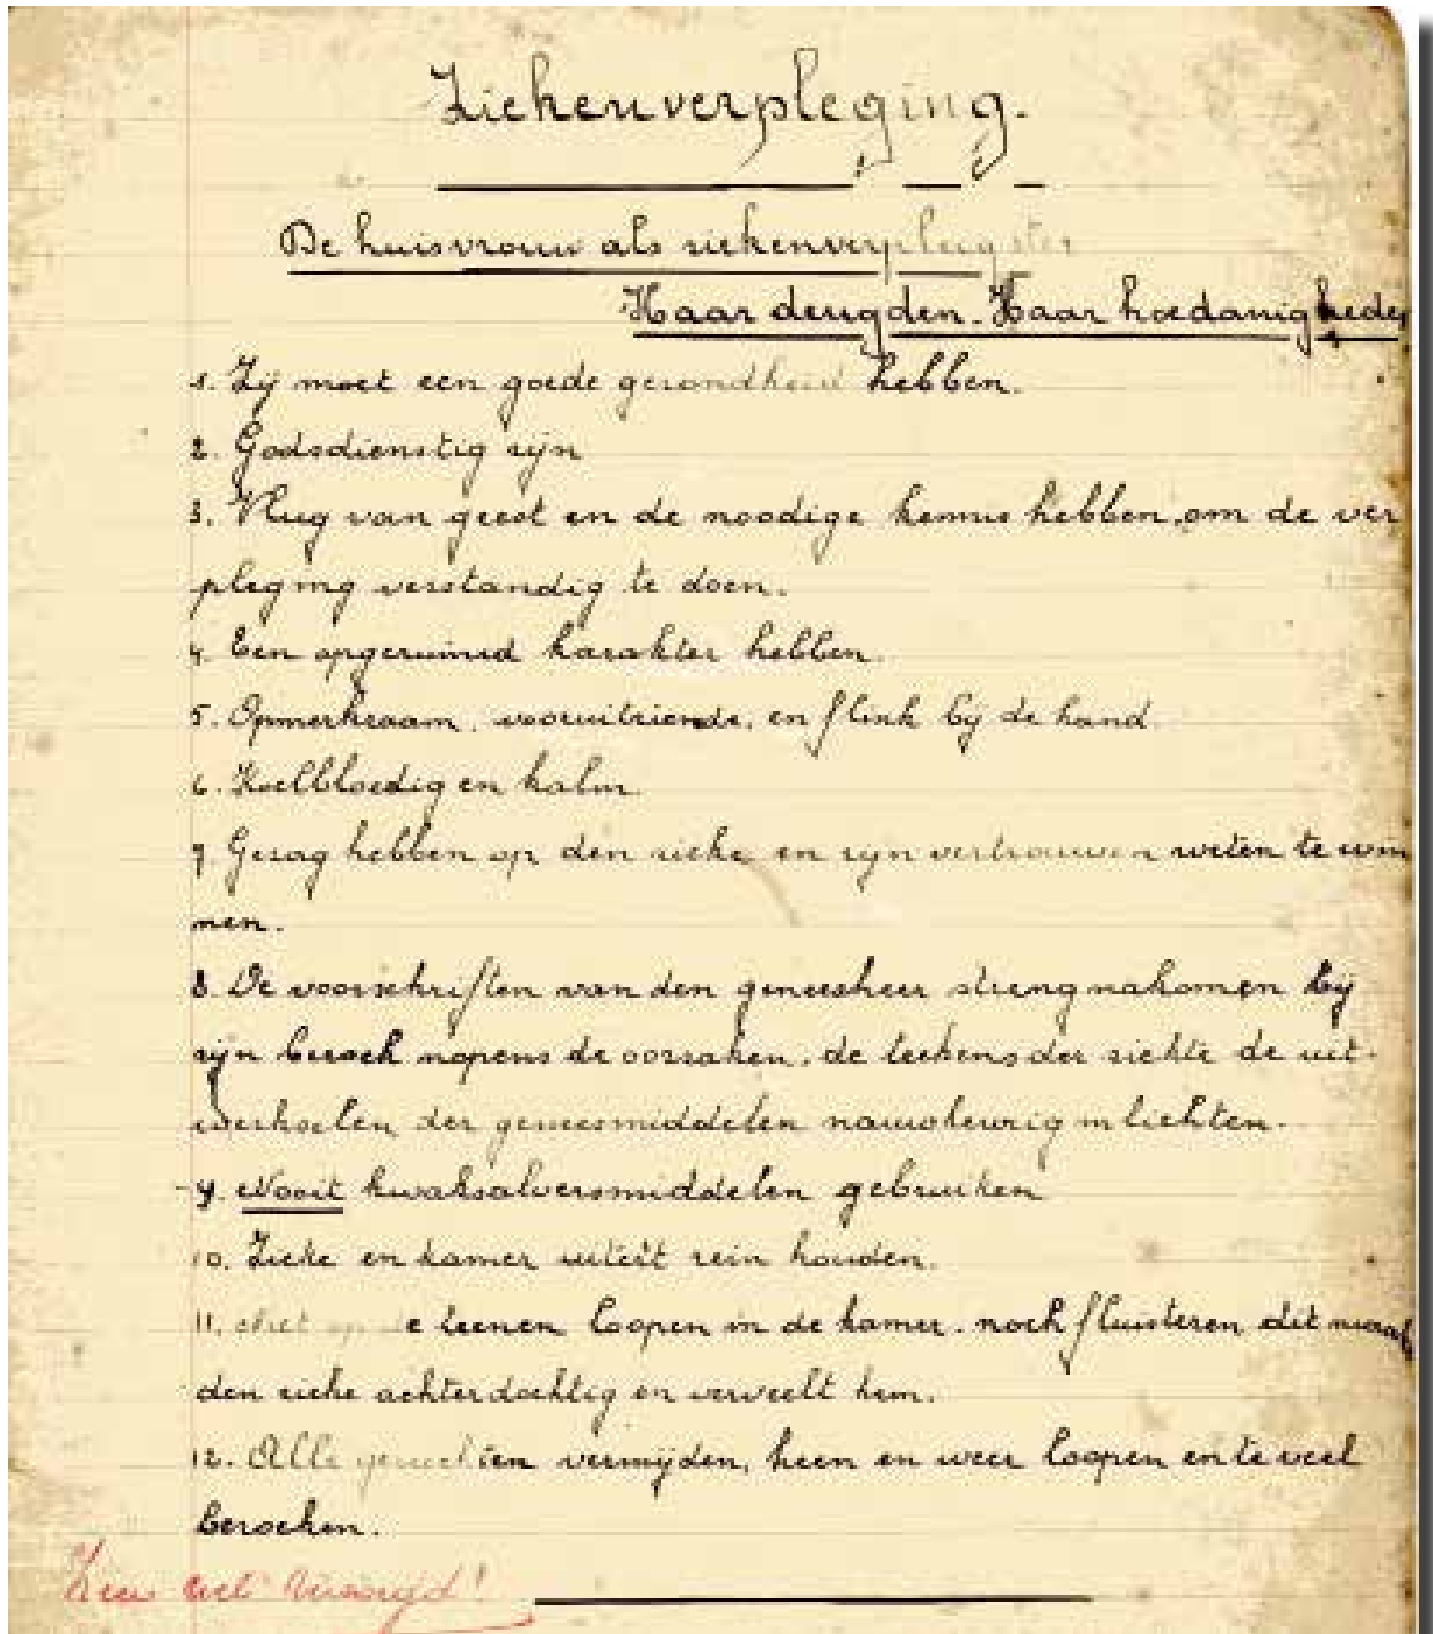 Ziekenverpleging.
De huisvrouw als ziekenverpleegster
Haar deugden. Haar hoedanigheden
1. Zij moet een goede gezondheid hebben.
2. Godsdienstig zijn
3. Vlug van geest en de noodige kennis hebben, om de ver
pleging verstandig te doen.
4. Een opgeruimd karakter hebben.
5. Opmerkzaam, vooruitziende, en flink bij de hand.
6. Koelbloedig en kalm
7. Gezag hebben op den zieke en zijn vertrouwen weten te win
nen.
8. De voorschriften van den geneesheer streng nakomen bij
zijn bezoek nopens de oorzaken, de teekens der ziekte de uit-
werkselen der geneesmiddelen nauwkeurig inlichten.
9. Nooit kwakzalversmiddelen gebruiken
10. Zieke en kamer uiterst rein houden.
11. Niet op de teenen loopen in de kamer. noch fluisteren dit maakt
den zieke achterdochtig en verveelt hem.
12. Alle geruchten vermijden, heen en weer loopen en te veel
bezoeken.
Zeer wel